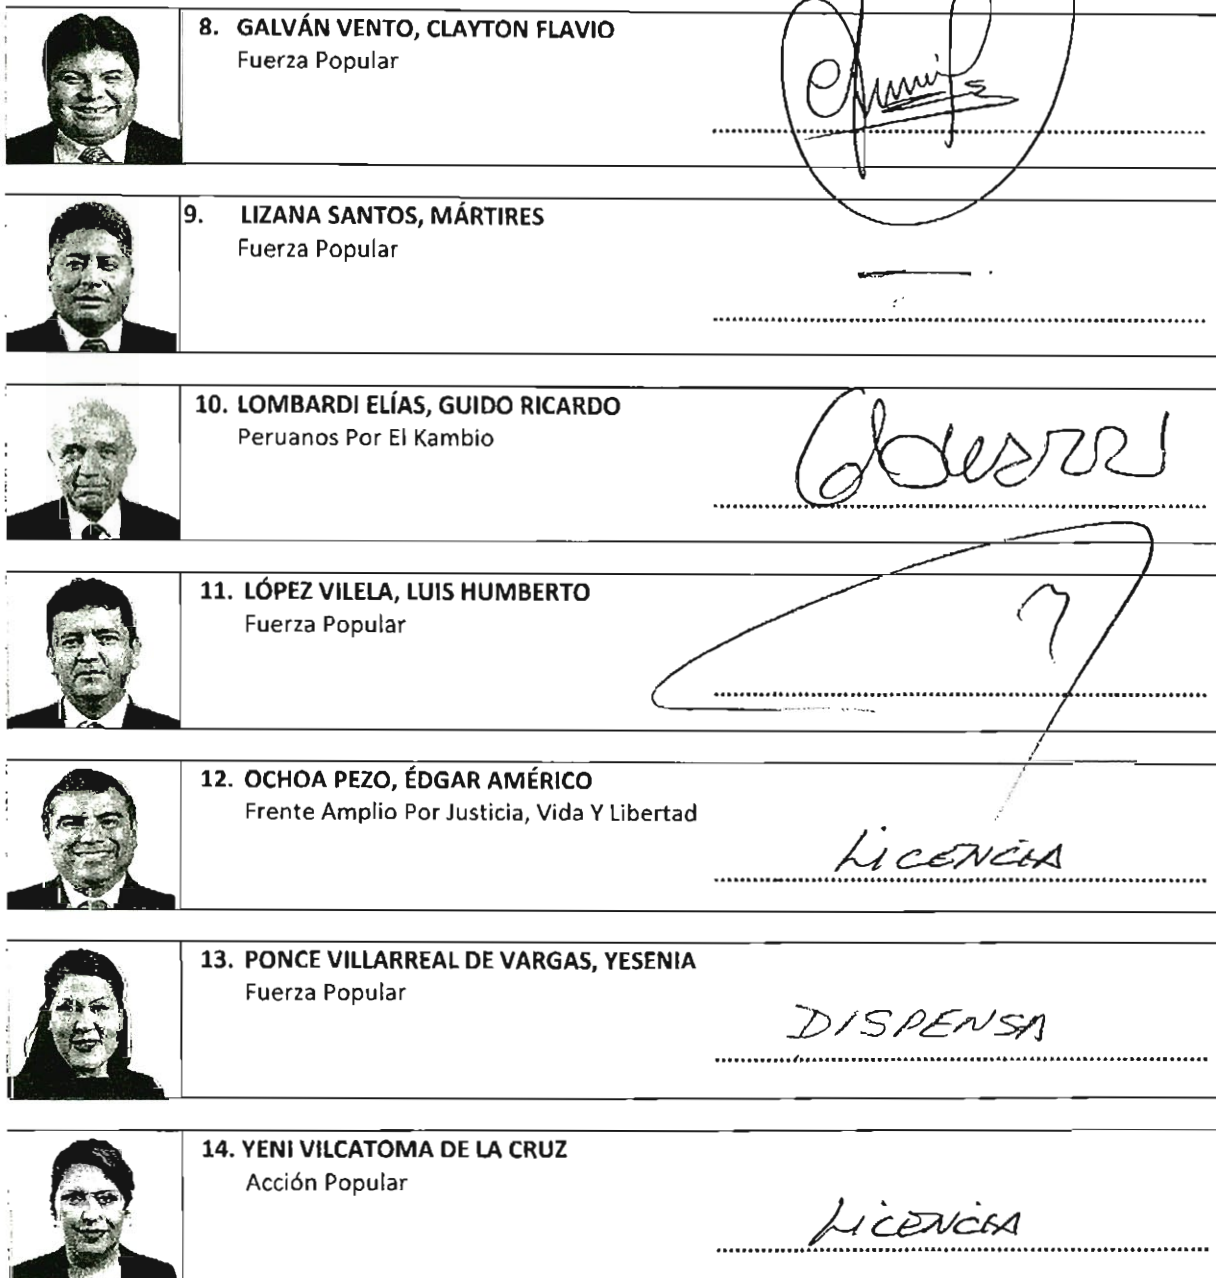 8. GALVÁN VENTO, CLAYTON FLAVIO
Fuerza Popular
9. LIZANA SANTOS, MÁRTIRES
Fuerza Popular
10. LOMBARDI ELÍAS, GUIDO RICARDO
Peruanos Por El Kambio
11. LÓPEZ VILELA, LUIS HUMBERTO
Fuerza Popular
12. OCHOA PEZO, ÉDGAR AMÉRICO
Frente Amplio Por Justicia, Vida Y Libertad
LICENCIA
13. PONCE VILLARREAL DE VARGAS, YESENIA
Fuerza Popular
DISPENSA
14. YENI VILCATOMA DE LA CRUZ
Acción Popular
LICENCIA